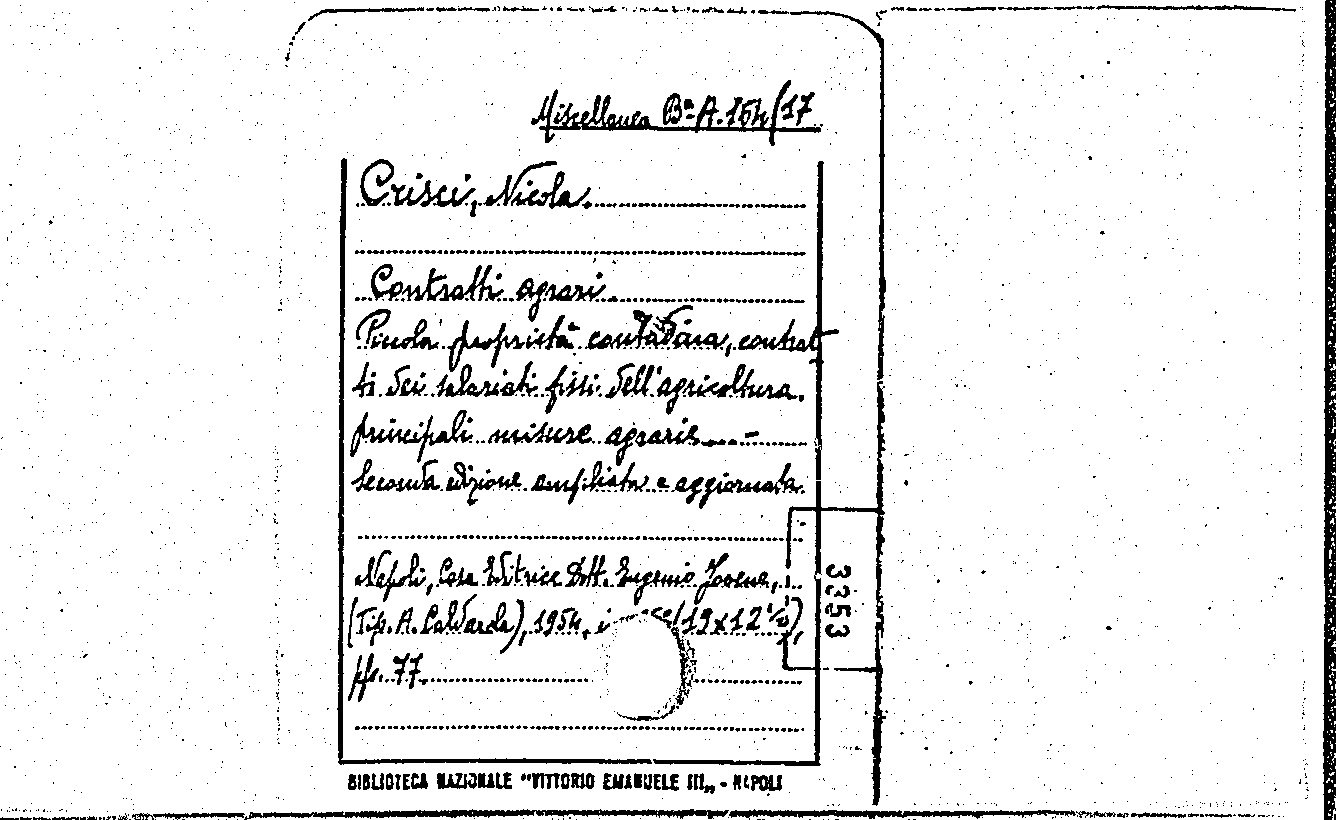 Miscellanea Bª A.154/17
Crisci, Nicola.
Contratti agrari.
Piccola proprietà contadina, contrat
ti dei salariati fissi dell'agricoltura.
principali misure agrarie....-
Seconda edizione ampliata e aggiornata.
Napoli, Casa Editrice Dott. Eugenio Jovene,
(Tip. A. Caldarola), 1954, (19x12½),
pp. 77.
3353
BIBLIOTECA NAZIONALE "VITTORIO EMANUELE III„ - NAPOLI